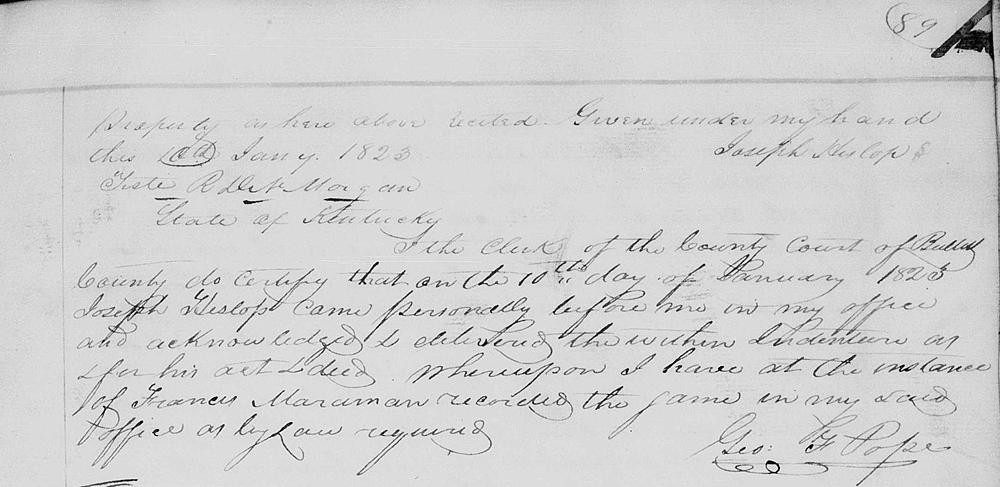 89
Property as here above recited Given under my hand
this 10th Jany. 1823 Joseph Hislop
Teste R Morgan
State of Kentucky
I the Clerk of the County Court of Bullitt
County do certify that on the 10th day of January 1823
Joseph Hislop came personally before me in my office
and acknowledged & delivered the within Indenture as
& for his act & deed. Whereupon I have at the instance
of Francis Maraman recorded the same in my said
office as by Law required
Geo. F Pope